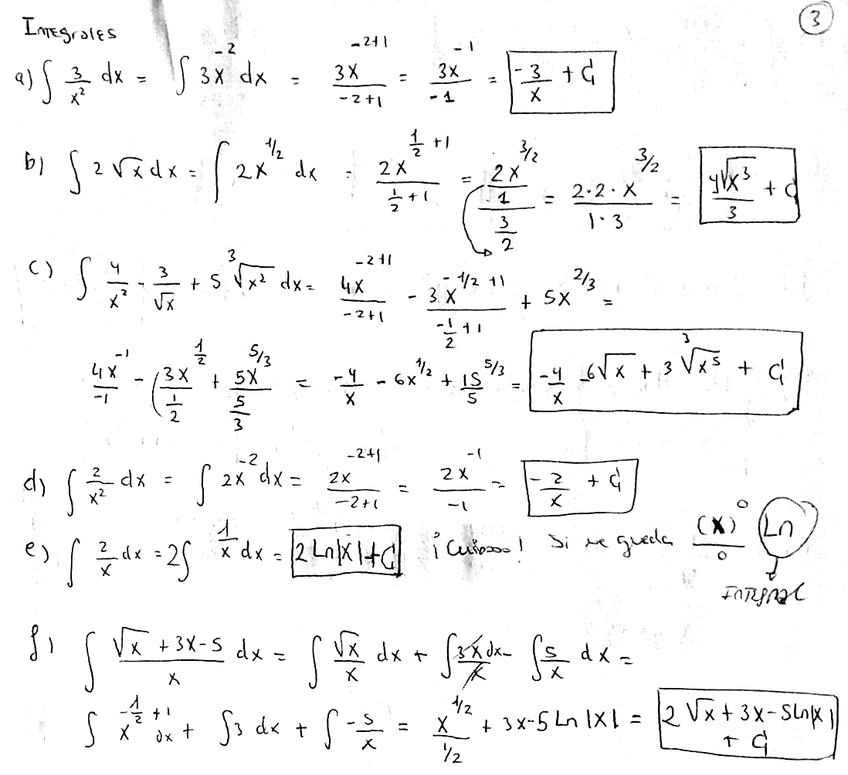 3
Integrales
a) ∫ 3/x² dx = ∫ 3x⁻² dx = 3x^(-2+1)/(-2+1) = 3x⁻¹/-1 = -3/x + C
b) ∫ 2√x dx = ∫ 2x^(1/2) dx = 2x^(1/2+1)/(1/2+1) = (2x^(3/2)/1)/(3/2) = 2·2·x^(3/2)/1·3 = 4√x³/3 + C
c) ∫ 4/x² - 3/√x + 5 ³√x² dx = 4x^(-2+1)/(-2+1) - 3x^(-1/2+1)/(-1/2+1) + 5x^(2/3) =
4x⁻¹/-1 - (3x^(1/2)/(1/2) + 5x^(5/3)/(5/3) = -4/x - 6x^(1/2) + 15/5^(5/3) = -4/x -6√x + 3 ³√x⁵ + C
d) ∫ 2/x² dx = ∫ 2x⁻² dx = 2x^(-2+1)/(-2+1) = 2x⁻¹/-1 = -2/x + C
e) ∫ 2/x dx = 2∫ 1/x dx = 2 Ln|x| + C ¡Cuidado! Si me queda (x)⁰/0 Ln
INTEGRAL
f) ∫ (√x + 3x - 5)/x dx = ∫ √x/x dx + ∫ 3x/x dx - ∫ 5/x dx =
∫ x^(-1/2+1) dx + ∫3 dx + ∫ -5/x = x^(1/2)/(1/2) + 3x - 5 Ln |x| = 2√x + 3x - 5Ln|x|
+ C